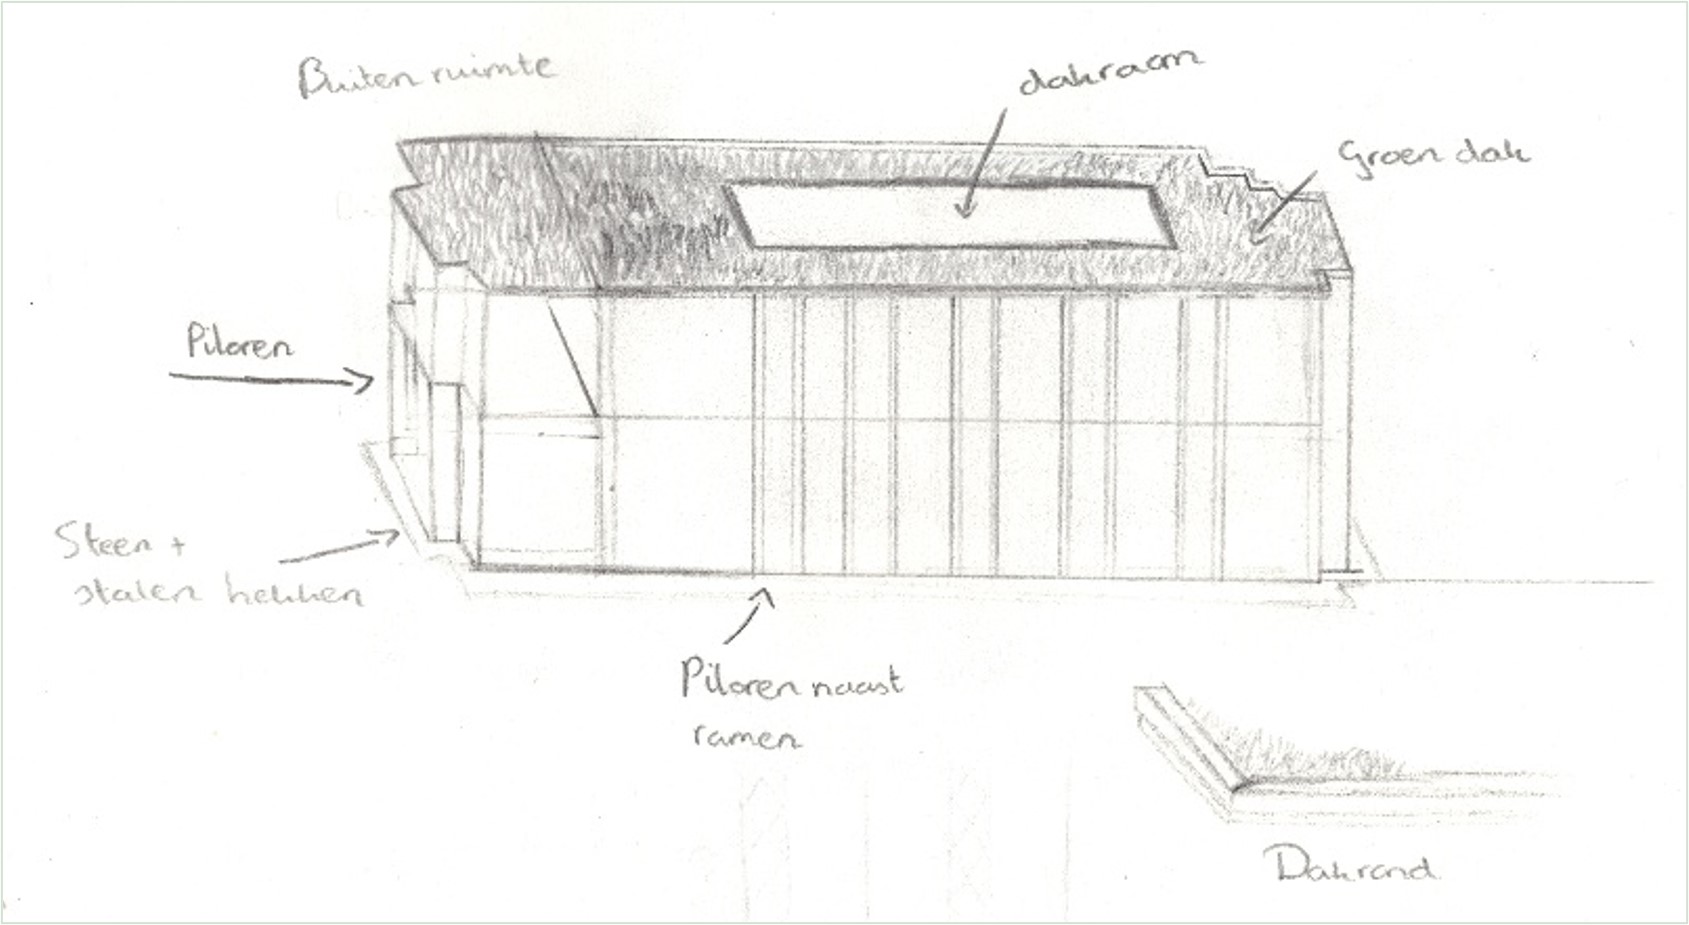 Buiten ruimte
dakraam
Groen dak
Piloren
Steen +
stalen hekken
Piloren naast
ramen
Dakrand